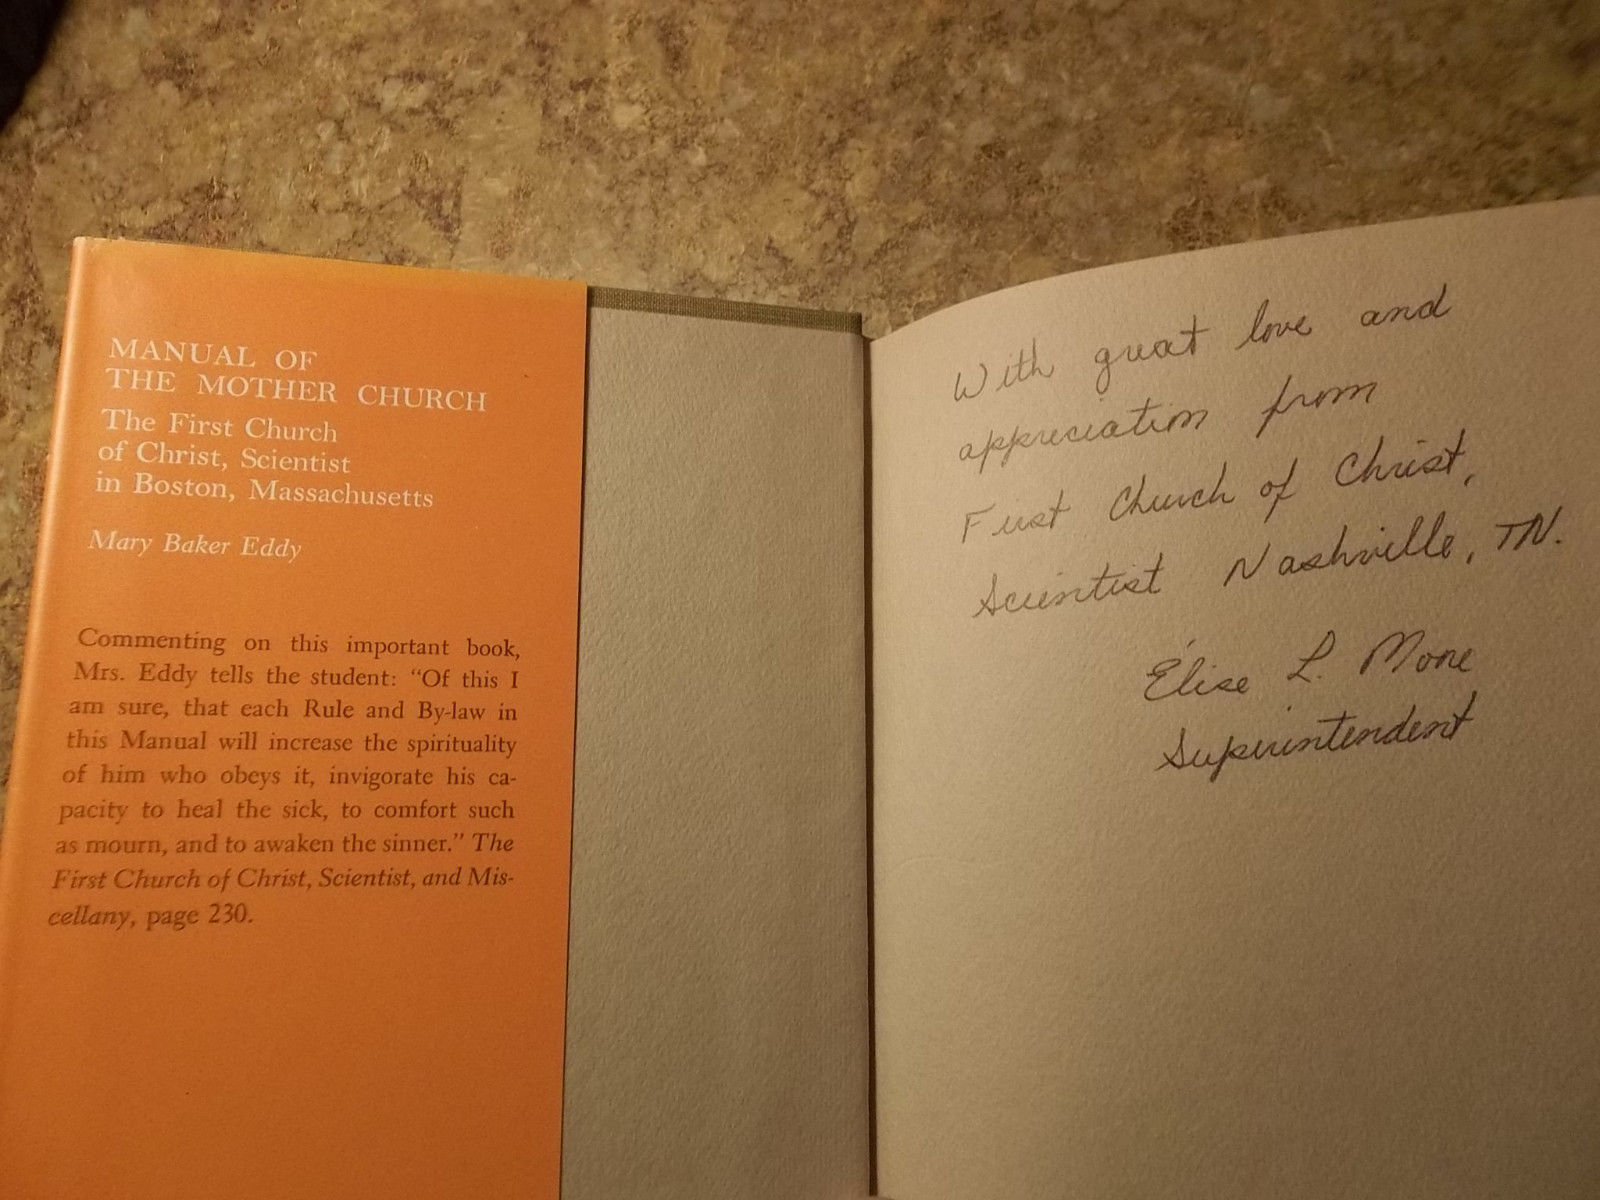 MANUAL OF
THE MOTHER CHURCH
The First Church
of Christ, Scientist
in Boston, Massachusetts
Mary Baker Eddy
Commenting on this important book,
Mrs. Eddy tells the student: “Of this I
am sure, that each Rule and By-law in
this Manual will increase the spirituality
of him who obeys it, invigorate his ca-
pacity to heal the sick, to comfort such
as mourn, and to awaken the sinner.” The
First Church of Christ, Scientist, and Mis-
cellany, page 230.
With great love and
appreciation from
First Church of Christ,
Scientist Nashville, TN.
Elise L. Mone
Superintendent